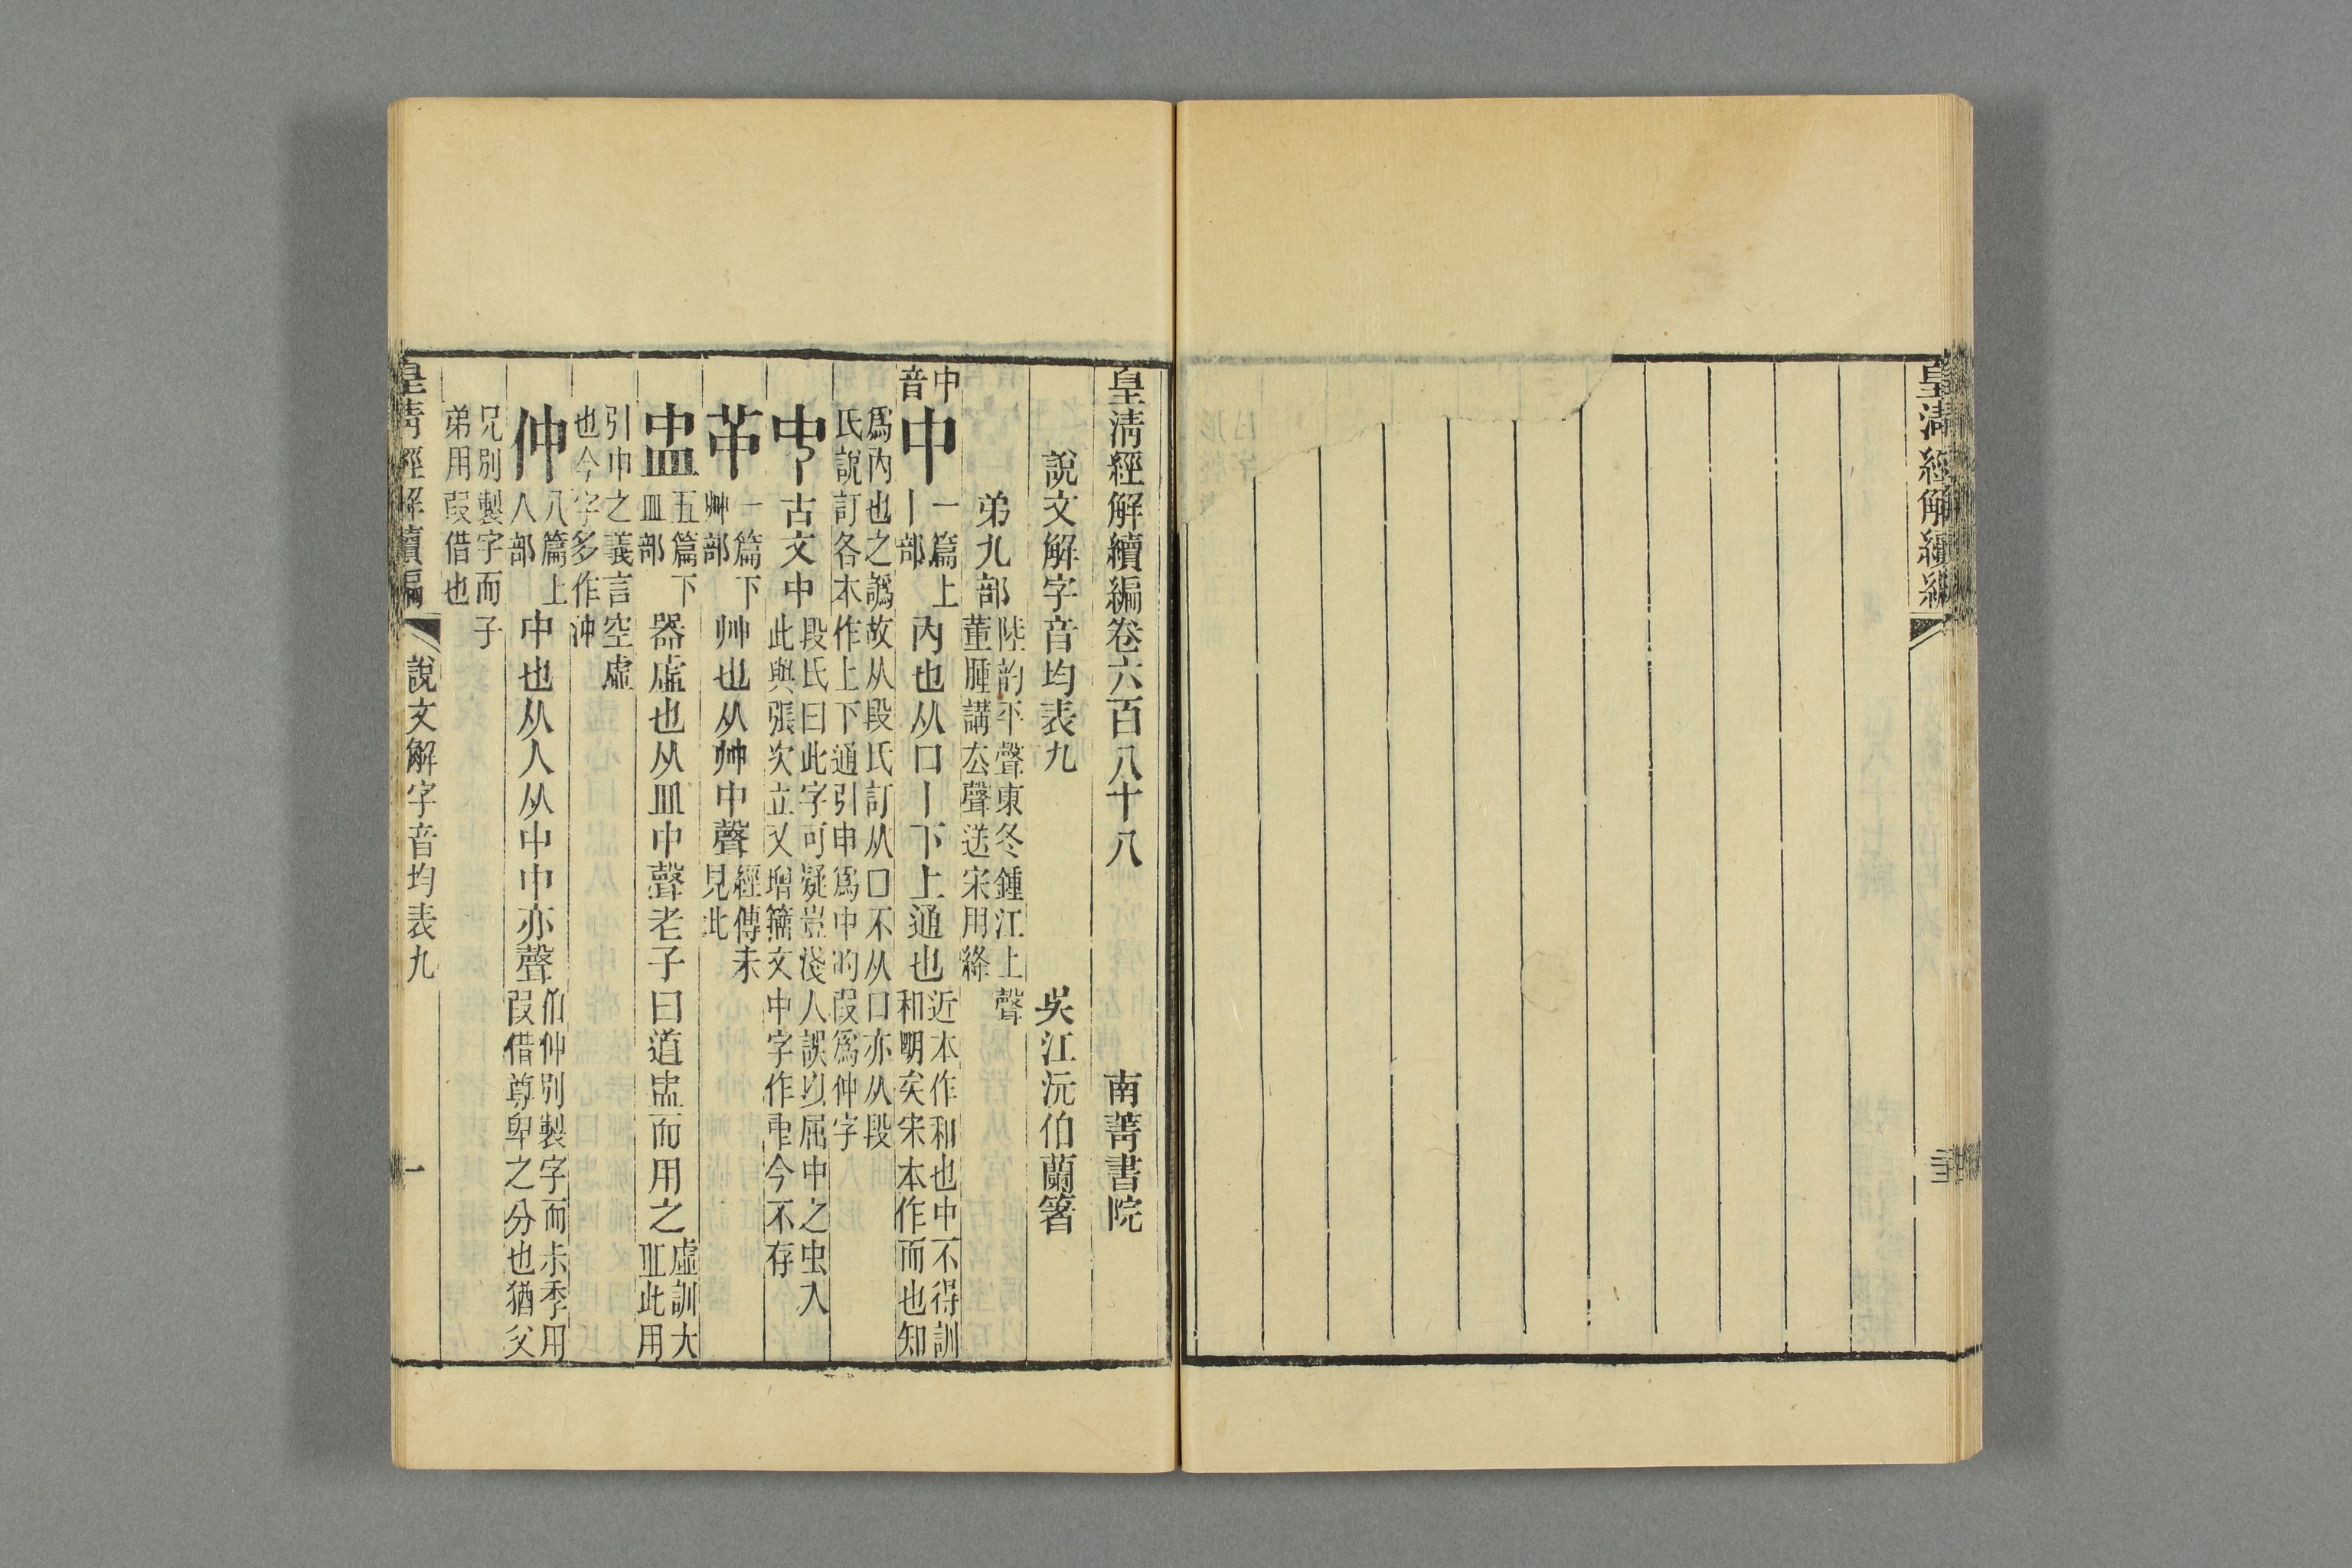 皇清經解續編
皇清經解續編卷六百八十八
南菁書院
說文解字音均表九
吳江沅伯蘭箸
弟九部
陸韵平聲東冬鍾江上聲
董腫講去聲送宋用絳
中
音
中
一篇上
丨部
內也从口丨下上通也
近本作和也中不得訓
和明矣宋本作而也知
爲內也之譌故从段氏訂从口不从口亦从段
氏說訂各本作上下通引申爲中的叚爲仲字
古文中
段氏曰此字可疑豈淺人誤以屈中之虫入
此與張次立又增籒文中字作𠁧今不存
一篇下
艸部
艸也从艸中聲
經傳未
見此
盅
五篇下
皿部
器虛也从皿中聲老子曰道盅而用之
虛訓大
皿此用
引申之義言空虛
也今字多作沖
仲
八篇上
人部
中也从人从中中亦聲
伯仲別製字而尗季用
叚借尊卑之分也猶父
兄別製字而子
弟用叚借也
皇清經解續編
說文解字音均表九
一